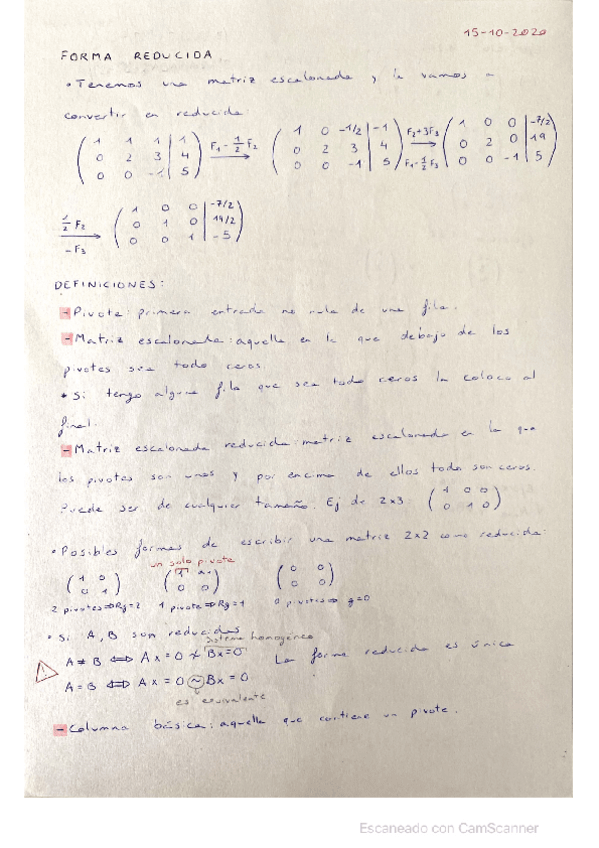 15-10-2020
FORMA REDUCIDA
• Tenemos una matriz escalonada y la vamos a
convertir en reducida
( 1 1 1 | 1 ) F₁ - 1/2 F₂ → ( 1 0 -1/2 | -1 ) F₂+3F₃ F₁-1/2 F₃ → ( 1 0 0 | -7/2 )
( 0 2 3 | 4 ) ( 0 2 3 | 4 ) ( 0 2 0 | 19 )
( 0 0 -1 | 5 ) ( 0 0 -1 | 5 ) ( 0 0 -1 | 5 )
1/2 F₂ -F₃ → ( 1 0 0 | -7/2 )
( 0 1 0 | 19/2 )
( 0 0 1 | -5 )
DEFINICIONES:
- Pivote: primera entrada no nula de una fila.
- Matriz escalonada: aquella en la que debajo de los
pivotes sea todo ceros.
• Si tengo alguna fila que sea todo ceros la coloco al
final.
- Matriz escalonada reducida: matriz escalonada en la que
los pivotes son unos y por encima de ellos todo son ceros.
Puede ser de cualquier tamaño. Ej de 2x3 ( 1 0 0 )
( 0 1 0 )
• Posibles formas de escribir una matriz 2x2 como reducida:
un solo pivote
( 1 0 ) ( 1 ) ( 0 0 )
( 0 1 ) ( 0 0 ) ( 0 0 )
2 pivotes⇒Rg=2 1 pivote⇒Rg=1 0 pivotes⇒ g=0
• Si A, B son reducidas
sistema homogéneo
A ≠ B ⟺ Ax = 0 ≁ Bx=0 La forma reducida es única
! A = B ⟺ Ax = 0 ~ Bx = 0
es equivalente
- Columna básica: aquella que contiene un pivote.
Escaneado con CamScanner